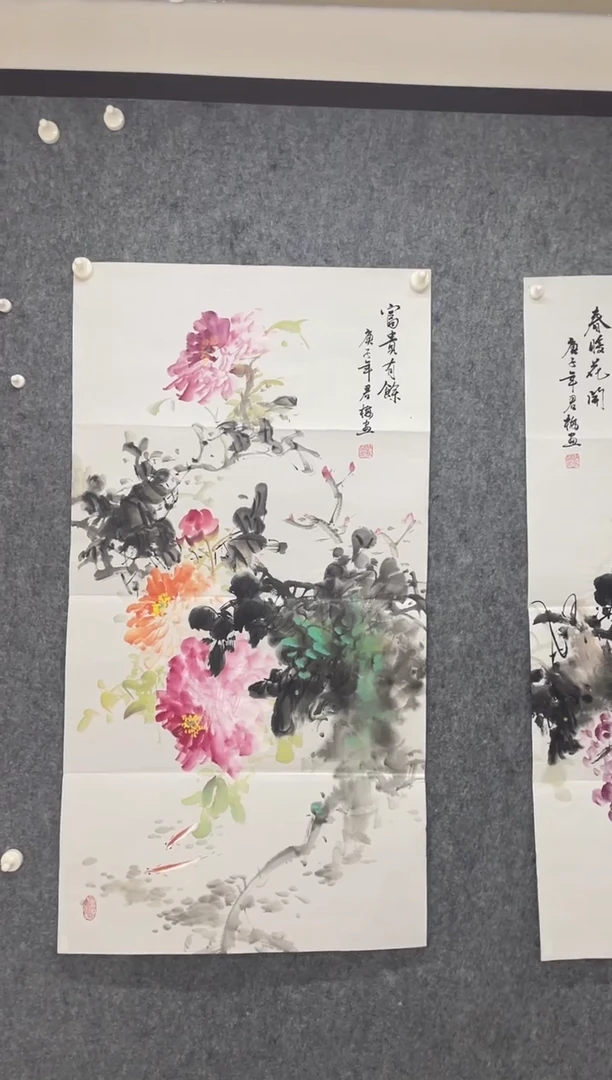 富貴有餘
庚子年君梅画
春暖花開
庚子年君梅画